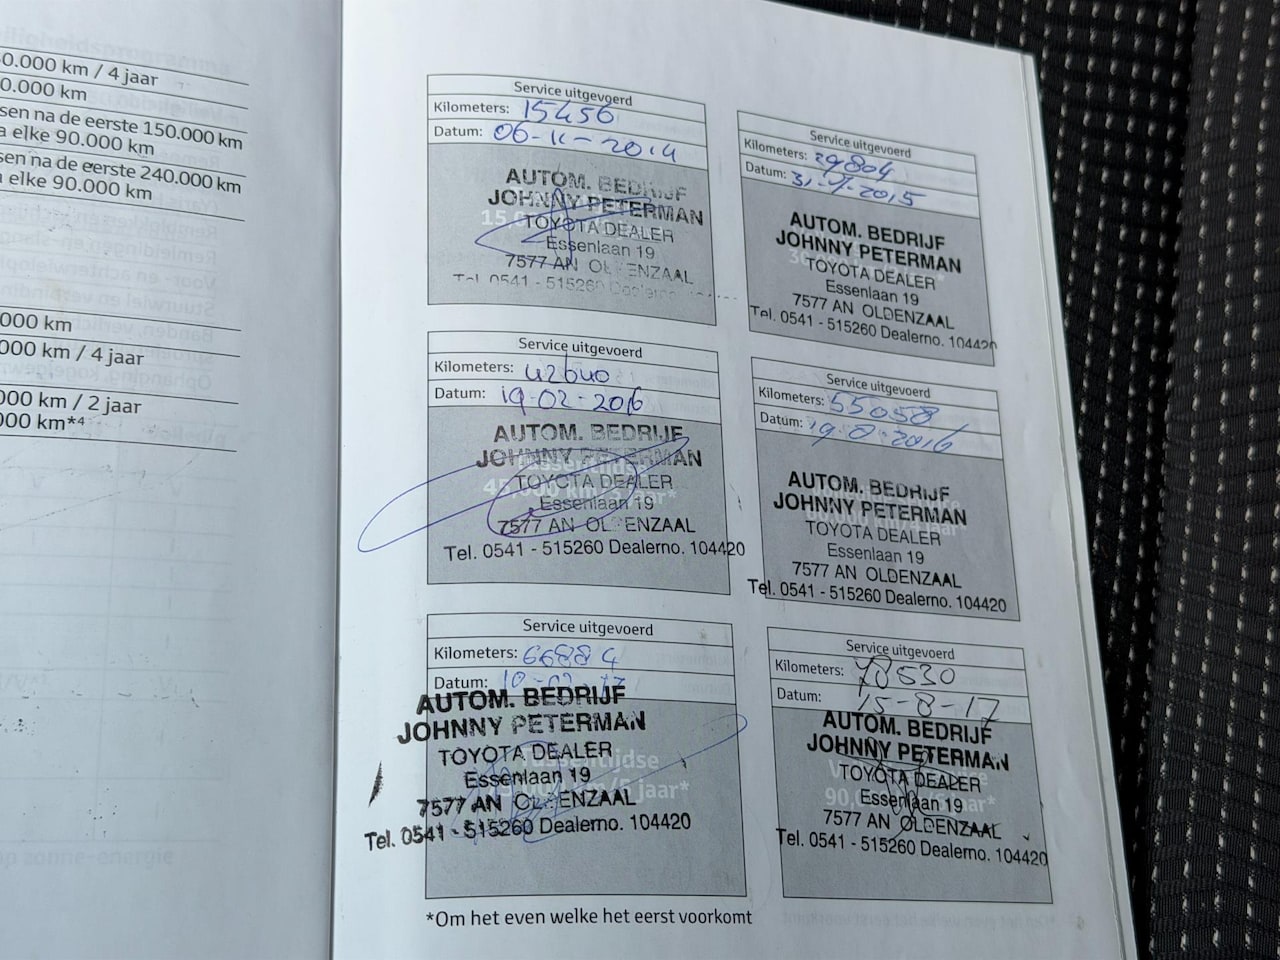 0.000 km / 4 jaar
0.000 km
sen na de eerste 150.000 km
a elke 90.000 km
sen na de eerste 240.000 km
a elke 90.000 km
000 km
000 km / 4 jaar
000 km / 2 jaar
000 km*⁴
Service uitgevoerd
Kilometers: 15456
Datum: 06-11-2014
AUTOM. BEDRIJF
JOHNNY PETERMAN
TOYOTA DEALER
Essenlaan 19
7577 AN OLDENZAAL
Tel. 0541 - 515260 Dealerno.
Service uitgevoerd
Kilometers: 29804
Datum: 2015
AUTOM. BEDRIJF
JOHNNY PETERMAN
TOYOTA DEALER
Essenlaan 19
7577 AN OLDENZAAL
Tel. 0541 - 515260 Dealerno. 104420
Service uitgevoerd
Kilometers: 42640
Datum: 19-02-2016
AUTOM. BEDRIJF
JOHNNY PETERMAN
TOYOTA DEALER
45.000 km/3 jaar*
Essenlaan 19
7577 AN OLDENZAAL
Tel. 0541 - 515260 Dealerno. 104420
Service uitgevoerd
Kilometers: 55058
Datum: 19-8-2016
AUTOM. BEDRIJF
JOHNNY PETERMAN
TOYOTA DEALER
Essenlaan 19
7577 AN OLDENZAAL
Tel. 0541 - 515260 Dealerno. 104420
Service uitgevoerd
Kilometers: 66884
Datum:
AUTOM. BEDRIJF
JOHNNY PETERMAN
TOYOTA DEALER
Tussentijdse
Essenlaan 19
7577 AN OLDENZAAL
Tel. 0541 - 515260 Dealerno. 104420
Service uitgevoerd
Kilometers: 78530
Datum: 15-8-17
AUTOM. BEDRIJF
JOHNNY PETERMAN
TOYOTA DEALER
Essenlaan 19
7577 AN OLDENZAAL
Tel. 0541 - 515260 Dealerno. 104420
*Om het even welke het eerst voorkomt